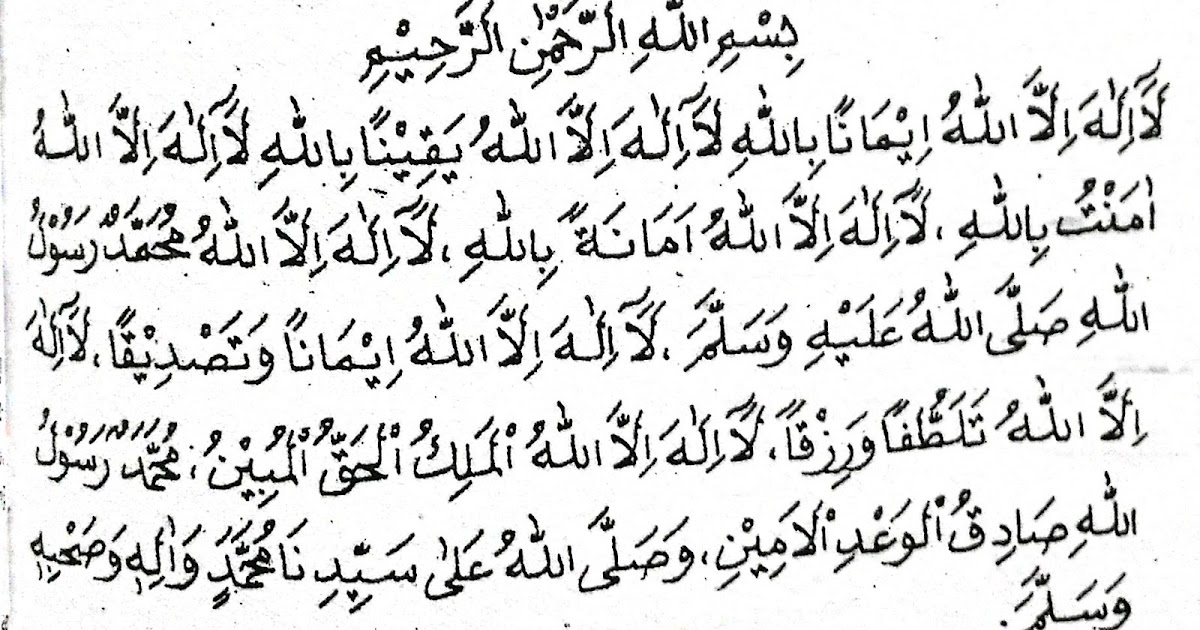 بِسْمِ اللهِ الرَّحْمٰنِ الرَّحِيْمِ
لَآاِلٰهَ اِلَّا اللهُ اِيْمَانًا بِاللهِ لَآاِلٰهَ اِلَّا اللهُ يَقِيْنًا بِاللهِ لَآاِلٰهَ اِلَّا اللهُ
اٰمَنْتُ بِاللهِ ، لَآاِلٰهَ اِلَّا اللهُ اَمَانَةً بِاللهِ ، لَآاِلٰهَ اِلَّا اللهُ مُحَمَّدٌ رَسُوْلُ
اللهِ صَلَّى اللهُ عَلَيْهِ وَسَلَّمَ ، لَآاِلٰهَ اِلَّا اللهُ اِيْمَانًا وَتَصْدِيْقًا ، لَآاِلٰهَ
اِلَّا اللهُ تَلَطُّفًا وَرِزْقًا ، لَآاِلٰهَ اِلَّا اللهُ الْمَلِكُ الْحَقُّ الْمُبِيْنُ ، مُحَمَّدٌ رَسُوْلُ
اللهِ صَادِقُ الْوَعْدِ الْاَمِيْنِ ، وَصَلَّى اللهُ عَلٰى سَيِّدِنَا مُحَمَّدٍ وَاٰلِهٖ وَصَحْبِهٖ
وَسَلَّمَ .